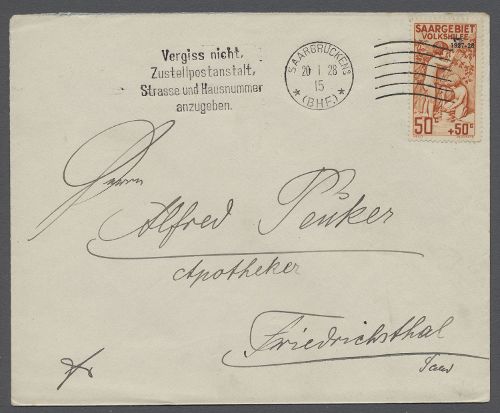 Vergiss nicht,
Zustellpostanstalt,
Strasse und Hausnummer
anzugeben.
SAARBRÜCKEN
20 1 28
15
* (BHF) *
SAARGEBIET
VOLKSHILFE
1927-28
50c +50c
Herrn
Alfred Peuker
Apotheker
Friedrichsthal
Saar